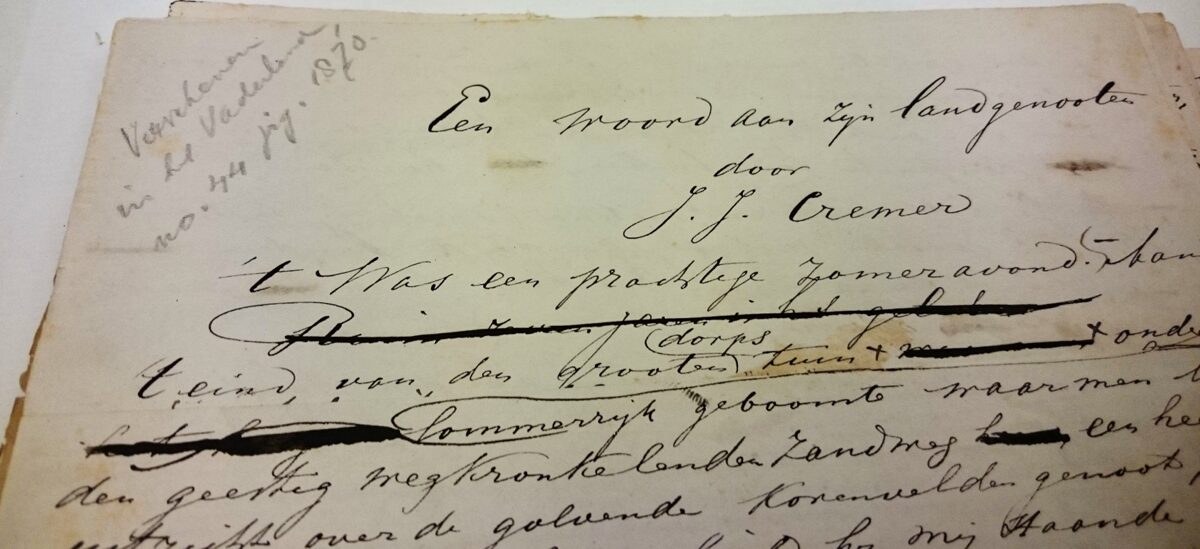 Verschenen
in het Vaderland,
no. 44 jrg. 1870.
Een woord aan zijn landgenooten
door
J. J. Cremer
't Was een prachtige zomeravond.
zeven jaren in het geleden
dorps
't eind van den grooten tuin + + onder
lommerrijk geboomte waar men
den geestig wegkronkelenden zandweg een
uitzicht over de golvende korenvelden genoot,
mij staande